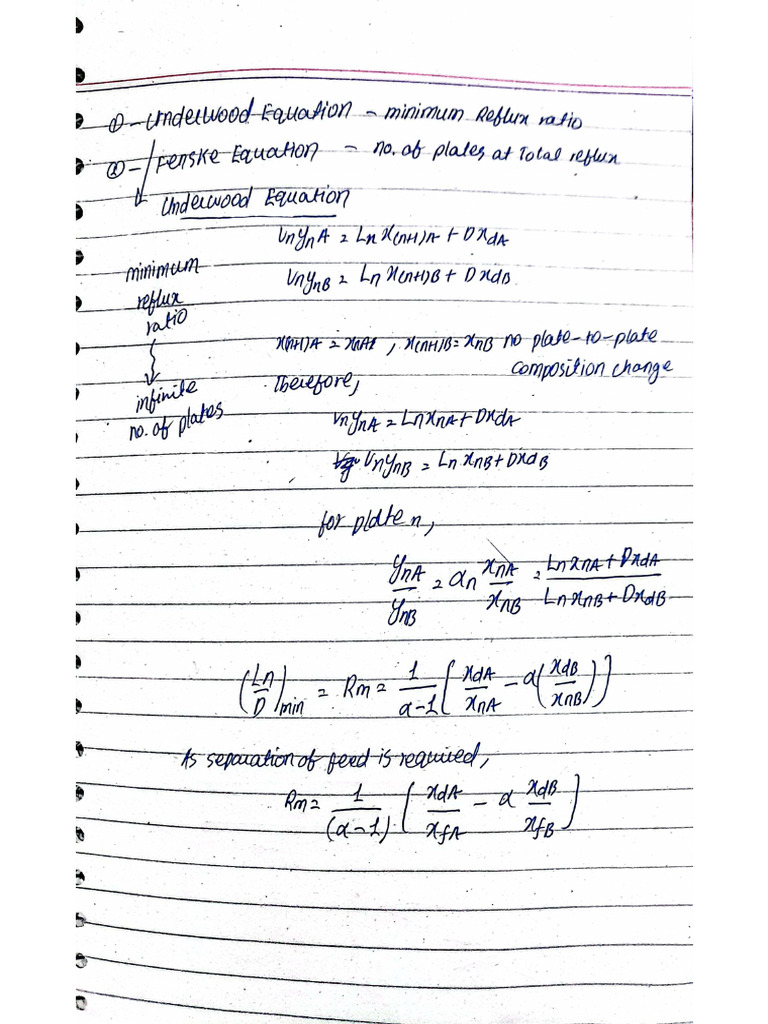 ① - Underwood Equation - minimum Reflux ratio
② - Fenske Equation - no. of plates at Total reflux
Underwood Equation
VnynA = Ln x(n+1)A + DxdA
VnynB = Ln x(n+1)B + DxdB
minimum
reflux
ratio
infinite
no. of plates
x(n+1)A = xnA, x(n+1)B = xnB no plate-to-plate
composition change
Therefore,
VnynA = LnxnA + DxdA
VnynB = LnxnB + DxdB
for plate n,
ynA/ynB = αn xnA/xnB = (LnxnA + DxdA)/(LnxnB + DxdB)
(Ln/D)min = Rm = 1/(α-1) [xdA/xnA - α(xdB/xnB)]
As separation of feed is required,
Rm = 1/(α-1) [xdA/xfA - α xdB/xfB]